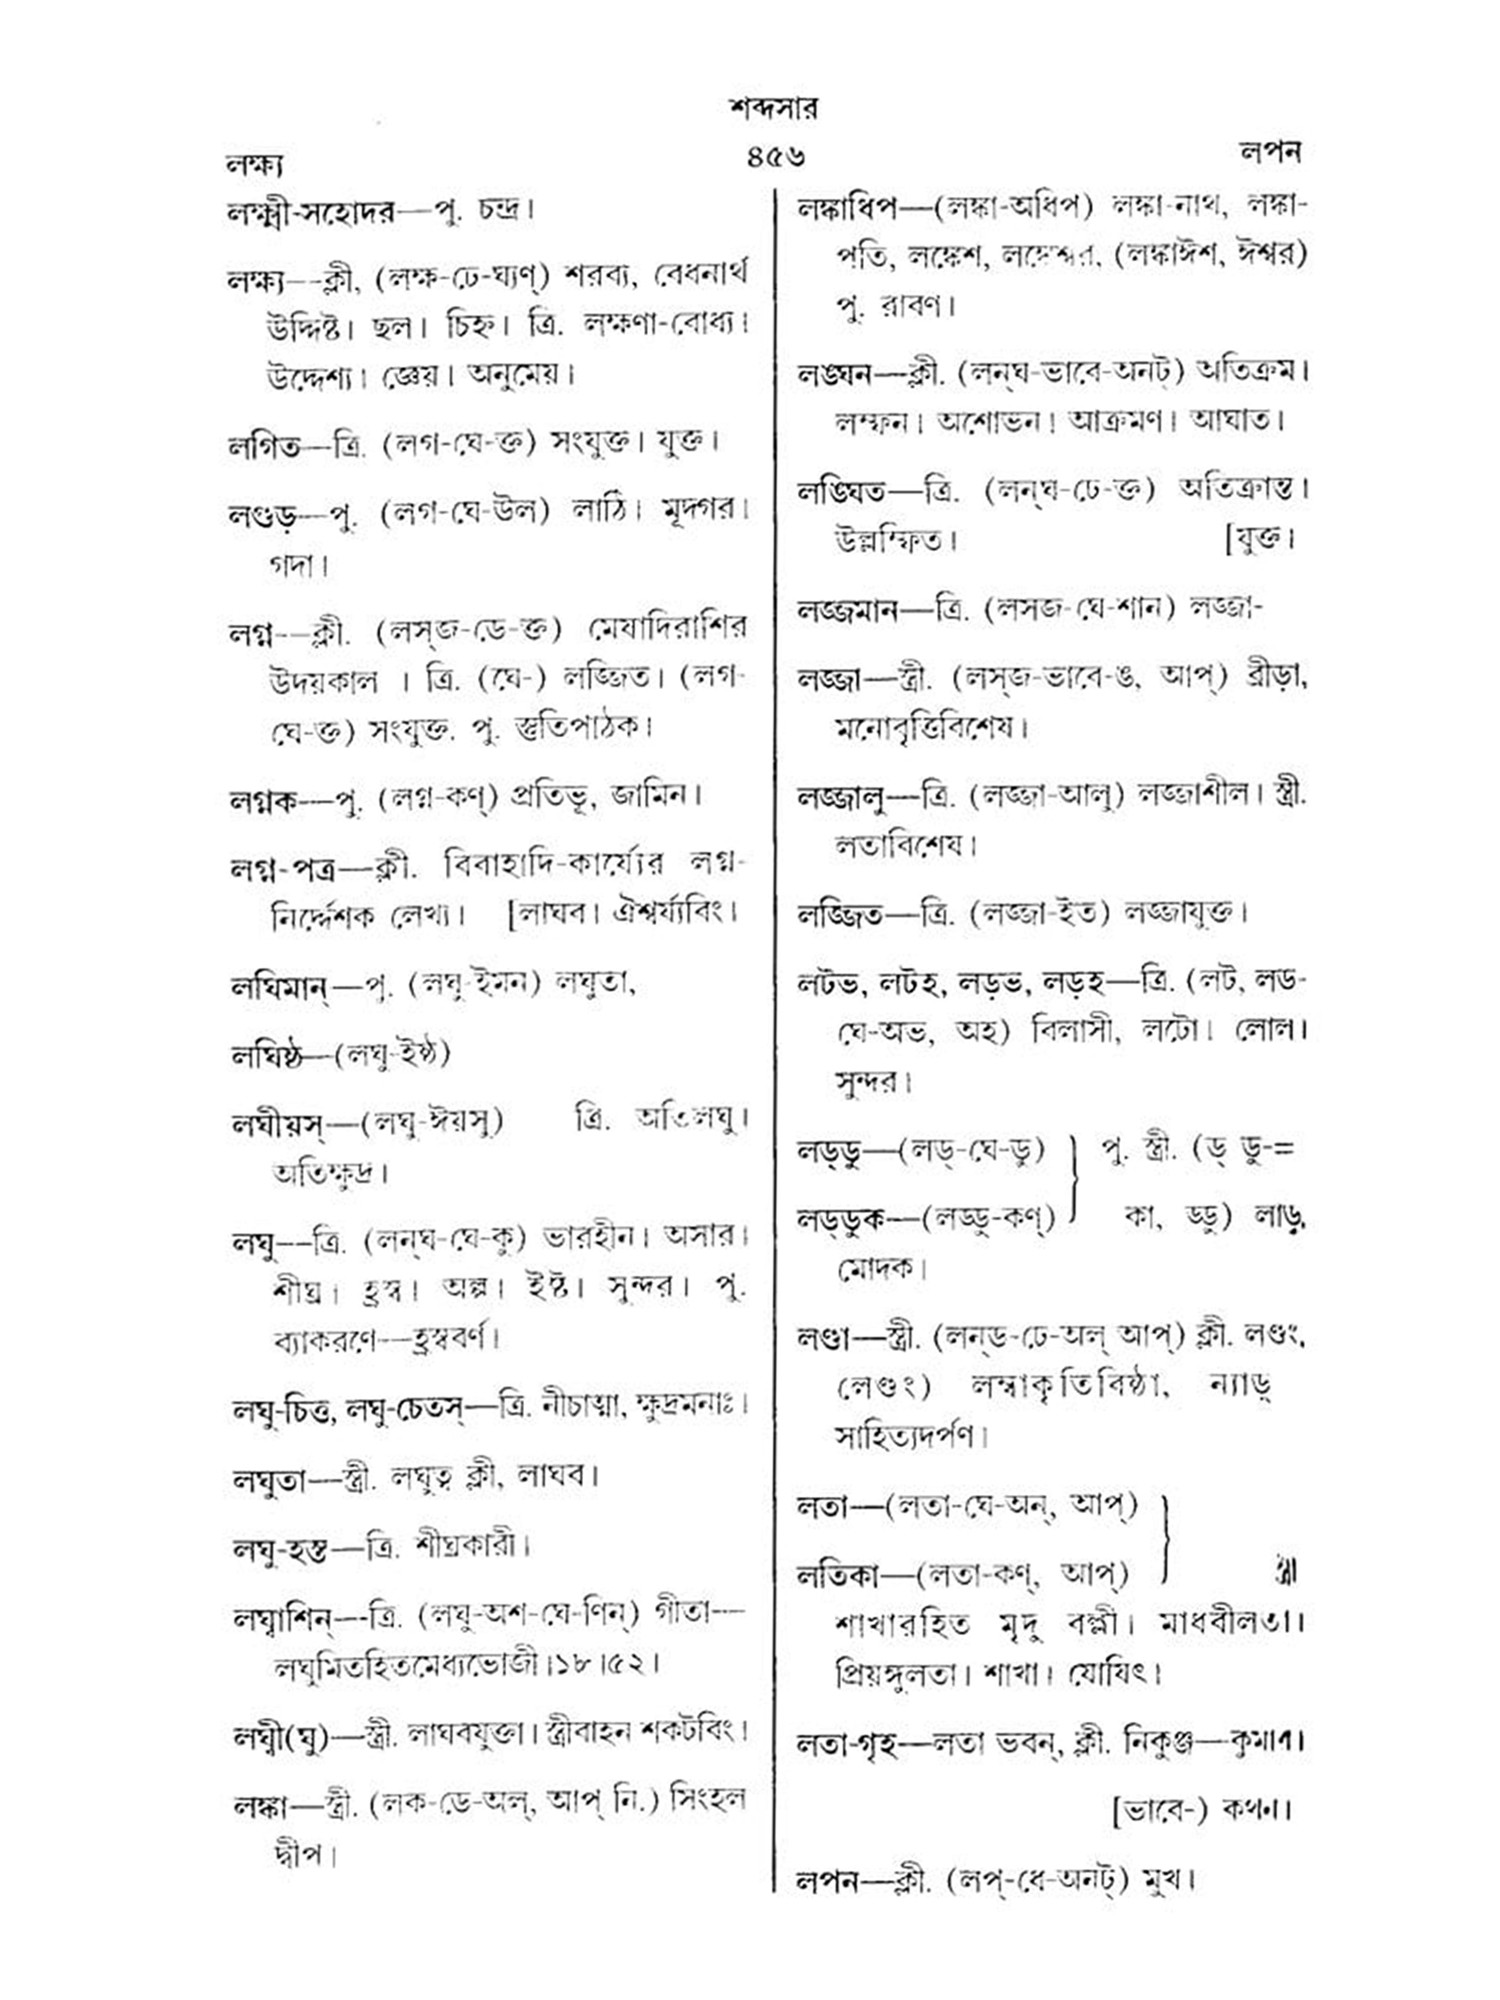 শব্দসার
লক্ষ্য
৪৫৬
লপন
লক্ষ্মী-সহোদর—পু. চন্দ্র।
লক্ষ্য—ক্লী, (লক্ষ-ঢে-ঘ্যণ্) শরব্য, বেধনার্থ
উদ্দিষ্ট। ছল। চিহ্ন। ত্রি. লক্ষণা-বোধ্য।
উদ্দেশ্য। জ্ঞেয়। অনুমেয়।
লগিত—ত্রি. (লগ-ঘে-ক্ত) সংযুক্ত। যুক্ত।
লগুড়—পু. (লগ-ঘে-উল) লাঠি। মূদ্গর।
গদা।
লগ্ন—ক্লী. (লস্জ-ডে-ক্ত) মেষাদিরাশির
উদয়কাল । ত্রি. (ঘে-) লজ্জিত। (লগ-
ঘে-ক্ত) সংযুক্ত. পু. স্তুতিপাঠক।
লগ্নক—পু. (লগ্ন-কণ্) প্রতিভূ, জামিন।
লগ্ন-পত্র—ক্লী. বিবাহাদি-কার্য্যের লগ্ন-
নির্দ্দেশক লেখ্য। [লাঘব। ঐশ্বর্য্যবিং।
লঘিমান্—পু. (লঘু-ইমন) লঘুতা,
লঘিষ্ঠ—(লঘু-ইষ্ঠ)
লঘীয়স্—(লঘু-ঈয়সু) ত্রি. অতিলঘু।
অতিক্ষুদ্র।
লঘু—ত্রি. (লন্ঘ-ঘে-কু) ভারহীন। অসার।
শীঘ্র। হ্রস্ব। অল্প। ইষ্ট। সুন্দর। পু.
ব্যাকরণে—হ্রস্ববর্ণ।
লঘু-চিত্ত, লঘু-চেতস্—ত্রি. নীচাত্মা, ক্ষুদ্রমনাঃ।
লঘুতা—স্ত্রী. লঘুত্ব ক্লী, লাঘব।
লঘু-হস্ত—ত্রি. শীঘ্রকারী।
লঘ্বাশিন্—ত্রি. (লঘু-অশ-ঘে-ণিন্) গীতা—
লঘুমিতহিতমেধ্যভোজী।১৮।৫২।
লঘ্বী(ঘু)—স্ত্রী. লাঘবযুক্তা। স্ত্রীবাহন শকটবিং।
লঙ্কা—স্ত্রী. (লক-ডে-অল্, আপ্ নি.) সিংহল
দ্বীপ।
লঙ্কাধিপ—(লঙ্কা-অধিপ) লঙ্কা-নাথ, লঙ্কা-
পতি, লঙ্কেশ, লঙ্কেশ্বর, (লঙ্কাঈশ, ঈশ্বর)
পু. রাবণ।
লঙ্ঘন—ক্লী. (লন্ঘ-ভাবে-অনট্) অতিক্রম।
লম্ফন। অশোভন। আক্রমণ। আঘাত।
লঙ্ঘিত—ত্রি. (লন্ঘ-ঢে-ক্ত) অতিক্রান্ত।
উল্লম্ফিত। [যুক্ত।
লজ্জমান—ত্রি. (লসজ-ঘে-শান) লজ্জা-
লজ্জা—স্ত্রী. (লস্জ-ভাবে-ঙ, আপ্) ব্রীড়া,
মনোবৃত্তিবিশেষ।
লজ্জালু—ত্রি. (লজ্জা-আলু) লজ্জাশীল। স্ত্রী.
লতাবিশেষ।
লজ্জিত—ত্রি. (লজ্জা-ইত) লজ্জাযুক্ত।
লটভ, লটহ, লড়ভ, লড়হ—ত্রি. (লট, লড-
ঘে-অভ, অহ) বিলাসী, লটো। লোল।
সুন্দর।
লড্ডু—(লড্-ঘে-ডু) পু. স্ত্রী. (ড্ ডু-=
লড্ডুক—(লড্ডু-কণ্) কা, ড্ডু) লাড়ু,
মোদক।
লণ্ডা—স্ত্রী. (লন্ড-ঢে-অল্ আপ্) ক্লী. লণ্ডং,
লেণ্ডং) লম্বাকৃতিবিষ্ঠা, ন্যাড়্
সাহিত্যদর্পণ।
লতা—(লতা-ঘে-অন্, আপ্)
লতিকা—(লতা-কণ্, আপ্) স্ত্রী
শাখারহিত মৃদু বল্লী। মাধবীলতা।
প্রিয়ঙ্গুলতা। শাখা। যোষিৎ।
লতা-গৃহ—লতা ভবন্, ক্লী. নিকুঞ্জ—কুমার।
[ভাবে-) কথন।
লপন—ক্লী. (লপ্-ধে-অনট্) মুখ।